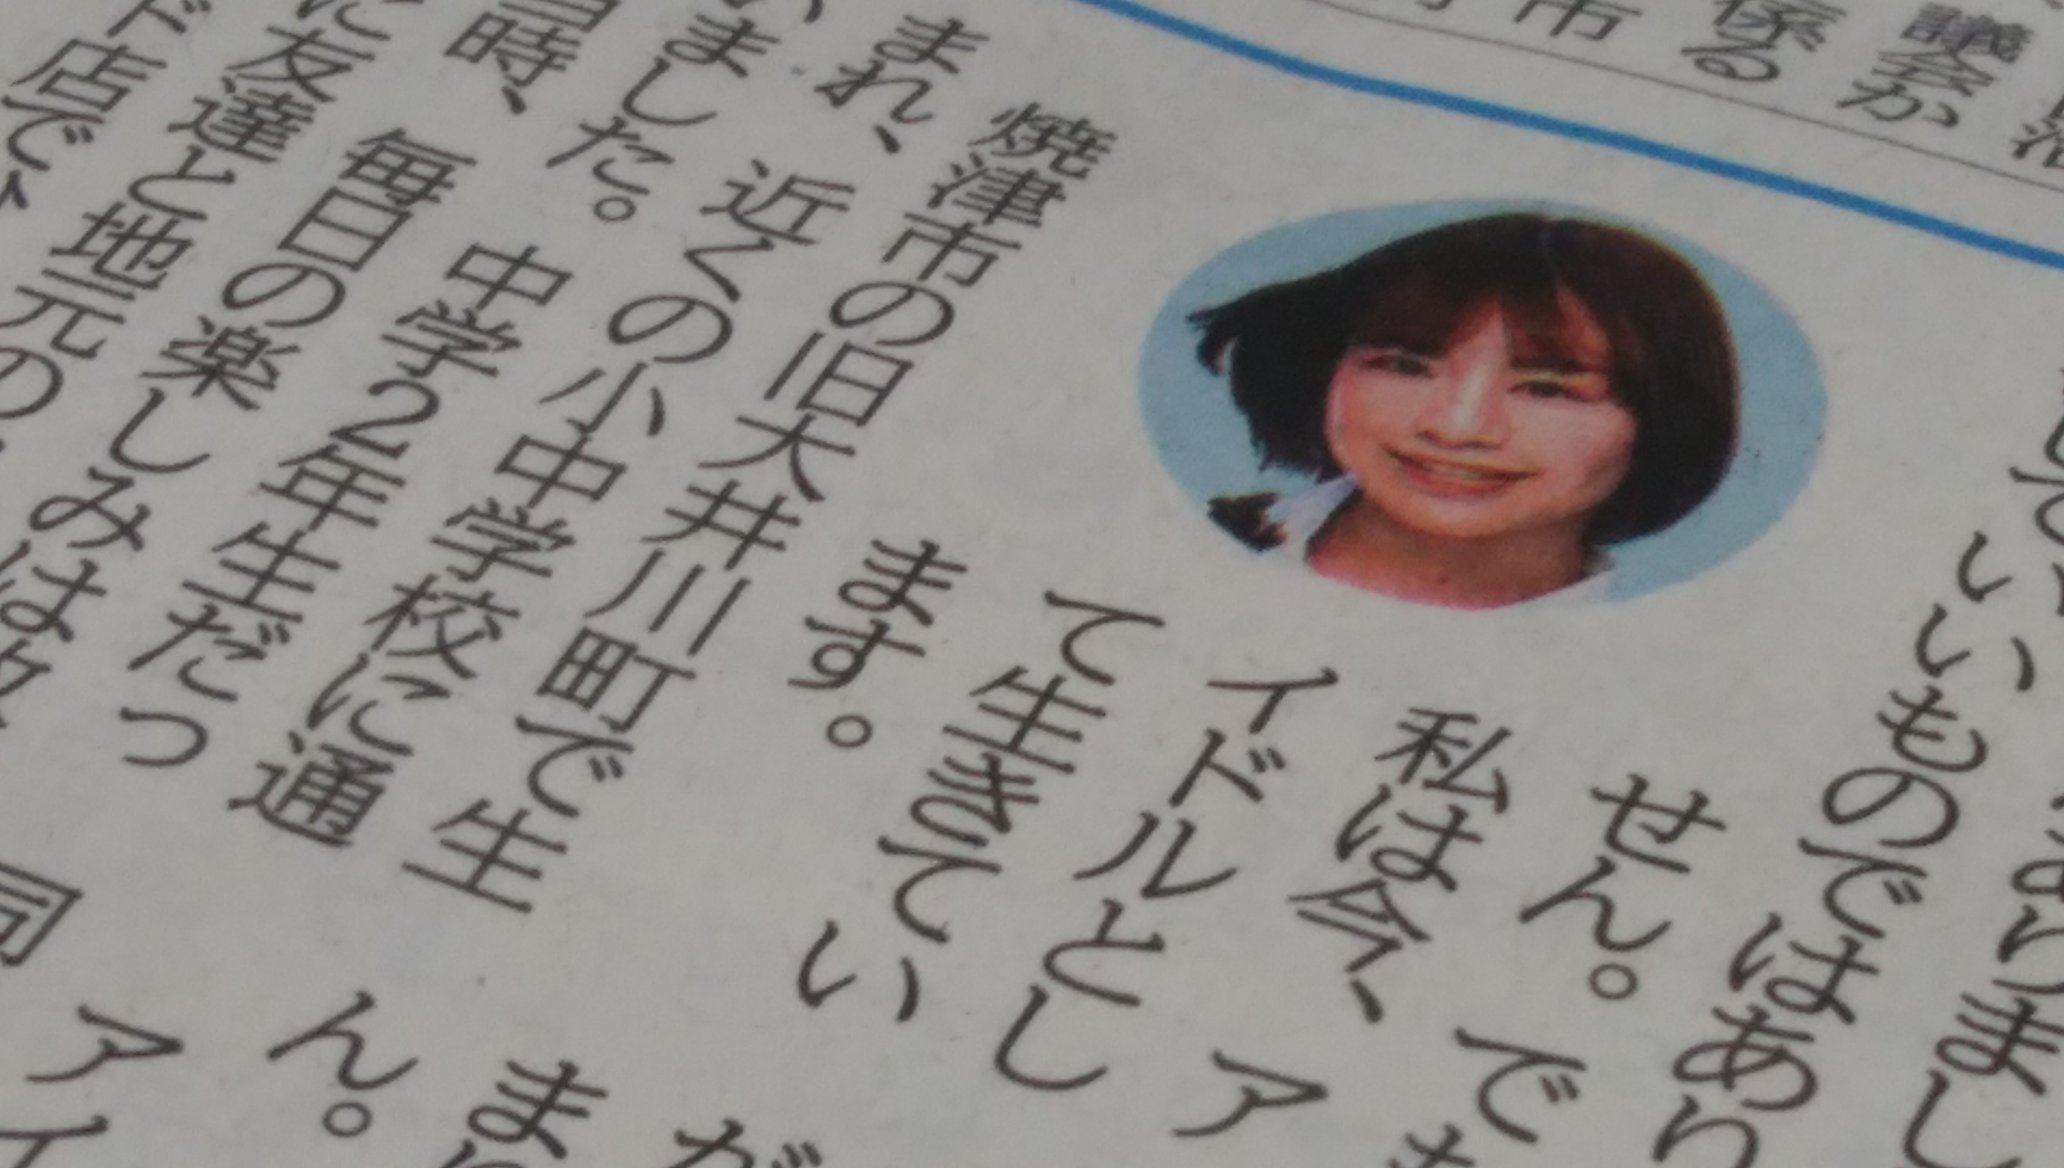 議会か
係る
市
ありまし
いいものではあり
せん。でも
私は今、ア
イドルとし
て生きてい
ます。
焼津市の旧大井川町で生
まれ、近くの小中学校に通
いました。中学2年生だっ
当時、毎日の楽しみは放
に友達と地元の
ド店で
が
ま
ん。
アイ
同